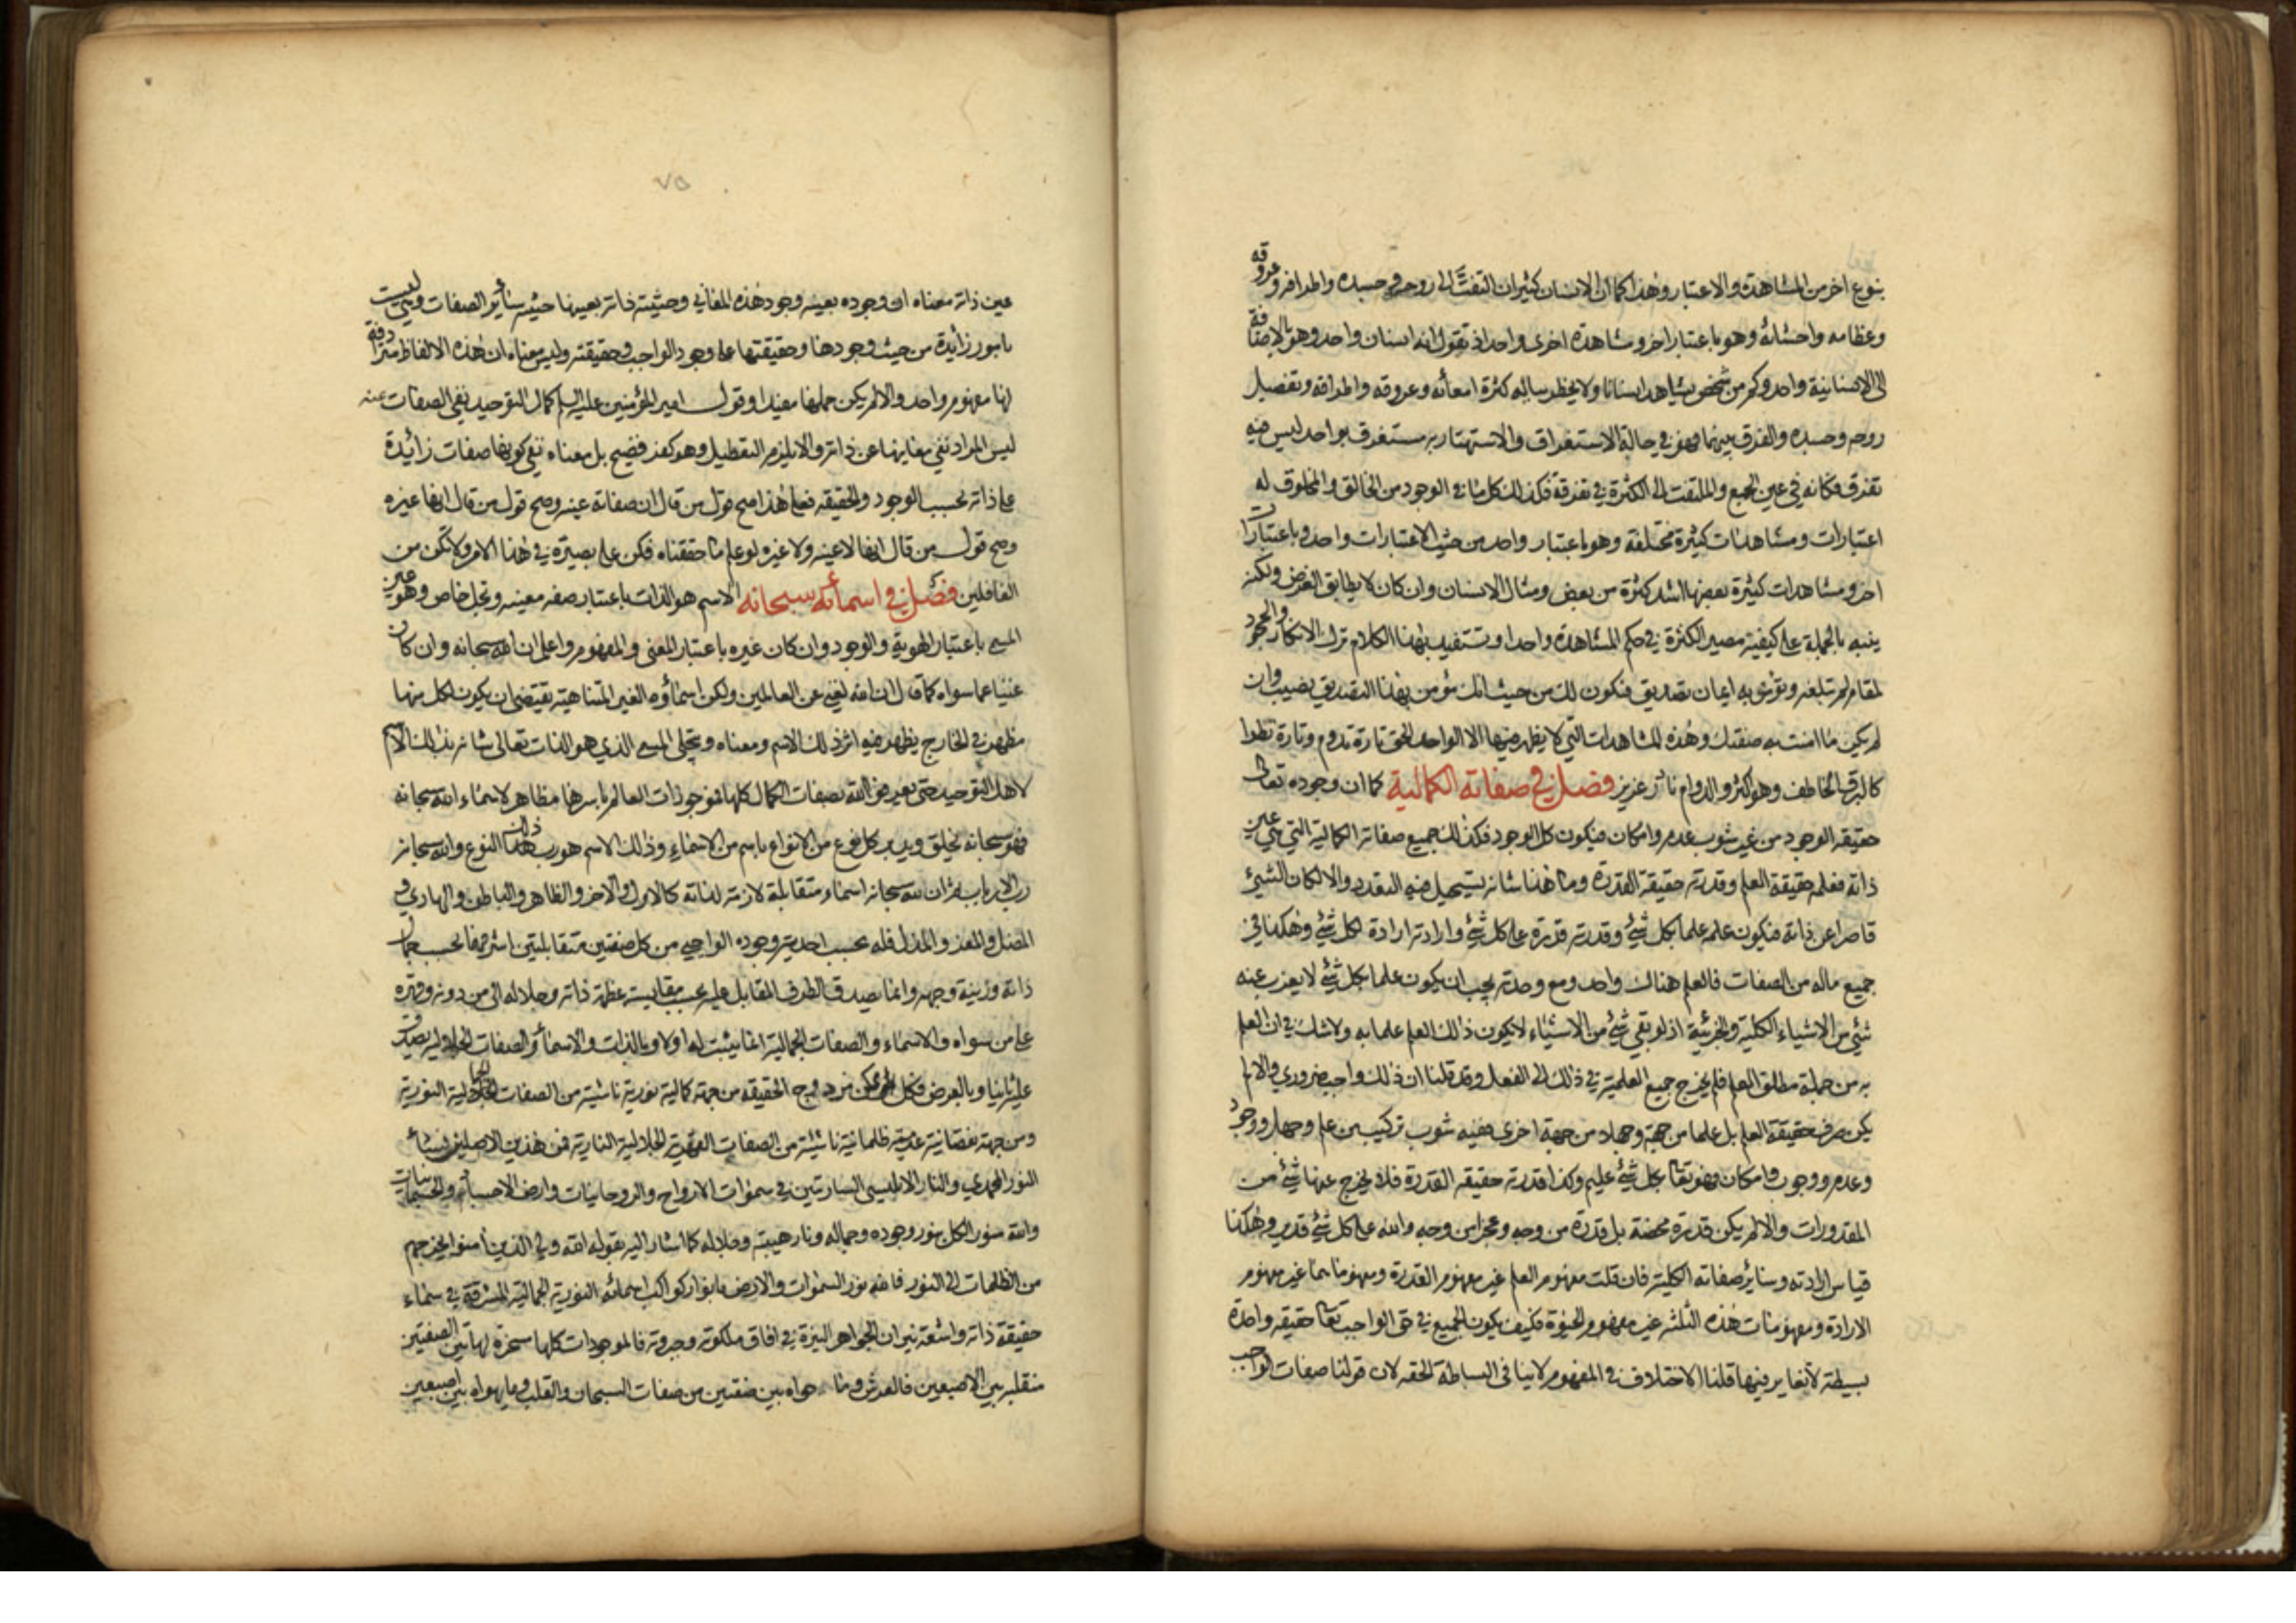 بنوع اخر من المشاهدة والاعتبار وهذا كما ان الانسان كثير ان التفت الى روحه وجسده واطرافه وعروقه
وعظامه واحشائه وهو باعتبار اخر ومشاهدة اخرى واحد اذ تقول انه انسان واحد وهو بالاضافة
الى الانسانية واحد وكم من شخص يشاهد انسانا ولا يخطر بباله كثرة امعائه وعروقه واطرافه وتفصيل
روحه وجسده والفرق بينهما وهو في حالة الاستغراق والاستهتار به مستغرق بواحد ليس فيه
تفرق فكانه في عين الجمع والملتفت الى الكثرة في تفرقة فكذلك كل ما في الوجود من الخالق والمخلوق له
اعتبارات ومشاهدات كثيرة مختلفة وهو باعتبار واحد من حيث الاعتبارات واحد وباعتبارات
اخر ومشاهدات كثيرة بعضها اشد كثرة من بعض ومثال الانسان وان كان لا يطابق الغرض ولكنه
ينبه بالجملة على كيفية مصير الكثرة في حكم المشاهدة واحدا وتستفيد بهذا الكلام ترك الانكار والجحود
لمقام لم تبلغه وتؤمن به ايمان تصديق فيكون لك من حيث انك مؤمن بهذا التصديق نصيب وان
لم يكن ما امنت به صفتك وهذه المشاهدات التي لا يظهر فيها الا الواحد الحق تارة تدوم وتارة تطرا
كالبرق الخاطف وهو اكثر والدوام نادر عزيز فصل في صفاته الكمالية كما ان وجوده تعالى
حقيقة الوجود من غير شوب عدم وامكان فيكون كل الوجود فكذلك جميع صفاته الكمالية التي هي عين
ذاته فعلمه حقيقة العلم وقدرته حقيقة القدرة وما هذا شانه يستحيل فيه التعدد والا لكان الشيئ
قاصرا عن ذاته فيكون علمه علما بكل شيئ وقدرته قدرة على كل شيئ وارادته ارادة لكل شيئ وهكذا في
جميع ماله من الصفات فالعلم هناك واحد ومع وحدته يجب ان يكون علما بكل شيئ لا يعزب عنه
شيئ من الاشياء الكلية والجزئية اذ لو بقي شيئ من الاشياء لا يكون ذالك العلم علما به ولا شك في ان العلم
به من جملة مطلق العلم فلم يخرج جميع العلمية في ذلك الى الفعل وقد قلنا ان ذلك واجب ضروري والا لم
يكن صرف حقيقة العلم بل علما من جهة وجهلا من جهة اخرى ففيه شوب تركيب من علم وجهل ووجود
وعدم ووجوب وامكان وهو تعالى بكل شيئ عليم وكذا قدرته حقيقة القدرة فلا يخرج عنها شيئ من
المقدورات والا لم يكن قدرة محضة بل قدرة من وجه وعجز من وجه والله على كل شيئ قدير وهكذا
قياس ارادته وسائر صفاته الكلية فان قلت مفهوم العلم غير مفهوم القدرة ومفهوماهما غير مفهوم
الارادة ومفهومات هذه الثلثه غير مفهوم الحيوة فكيف يكون الجميع في حق الواجب تعالى حقيقة واحدة
بسيطة لا تغاير فيها قلنا الاختلاف في المفهوم لا ينافى البساطة الحقه لان قولنا صفات الواجب
٧٥
عين ذاته معناه ان وجوده بعينه وجود هذه المعاني وحيثية ذاته بعينها حيثية سائر الصفات وليست هي
بامور زائدة من حيث وجودها وحقيقتها على وجود الواجب وحقيقته وليس معناه ان هذه الالفاظ مترادفة
لها مفهوم واحد والا لم يكن حملها مفيدا وقول امير المؤمنين عليه السلم كمال التوحيد نفى الصفات عنه
ليس المراد نفي معانيها عن ذاته والا يلزم التعطيل وهو كفر فضيح بل معناه نفي كونها صفات زائدة
على ذاته بحسب الوجود والحقيقه فعلى هذا صح قول من قال ان صفاته عينه وصح قول من قال انها غيره
وصح قول من قال انها لا عينه ولا غيره لو علم ما حققناه فكن على بصيرة في هذا الامر ولا تكن من
الغافلين فصل في اسمائه سبحانه الاسم هو الذات باعتبار صفه معينه وتجل خاص وهو عين
المسمى باعتبار الهوية والوجود وان كان غيره باعتبار المعنى والمفهوم واعلم ان الله سبحانه وان كان
غنيا عما سواه كما قال ان الله لغني عن العالمين ولكن اسماؤه الغير المتناهية تقتضى ان يكون لكل منها
مظهر في الخارج يظهر فيه اثر ذلك الاسم ومعناه ويتجلى المسمى الذي هو الذات تعالى شانه بذلك الاسم
لاهل التوحيد حتى يعرفوا الله بصفات الكمال كلها فموجودات العالم باسرها مظاهر لاسماء الله سبحانه
فهو سبحانه يخلق ويدبر كل نوع من الانواع باسم من الاسماء وذلك الاسم هو رب ذلك النوع والله سبحانه
رب الارباب ثم ان لله سبحانه اسماء متقابلة لازمة لذاته كالاول والاخر والظاهر والباطن والهادي و
المضل والمعز والمذل فله بحسب احدية وجوده الواجبي من كل صفتين متقابلتين اشرفهما بحسب جمال
ذاته وزينة وجهه وانما يصدق الطرف المقابل عليه بحسب مقايسة عظمة ذاته وجلاله الى من دونه وقهره
على من سواه والاسماء والصفات الجمالية انما يثبت لها اولا وبالذات والاسماء والصفات الجلالية يصدق
عليه ثانيا وبالعرض فكل ممكن مزدوج الحقيقه من جهة كمالية نورية ناشية من الصفات الجمالية النورية
ومن جهة نقصانية عدمية ظلمانية ناشئة من الصفات القهرية الجلالية النارية فمن هذين الاصلين نشأ
النور المحمدي والنار الابليسي الساريتين في سموات الارواح والروحانيات وارض الاجسام والجسمانيات
والله منور الكل بنور وجوده وجماله ونار هيبته وجلاله كما اشار اليه بقوله الله ولي الذين امنوا يخرجهم
من الظلمات الى النور فالله نور السموات والارض بانوار كواكب اسمائه النورية الجمالية المشرقة في سماء
حقيقة ذاته واشعة نيران الجواهر النيرة في افاق ملكوته وجبروته فالموجودات كلها مسخرة لهاتين الصفتين
منقلبه بين الاصبعين فالعرش وما حواه بين صفتين من صفات السبحان والقلب وما يهواه بين اصبعين